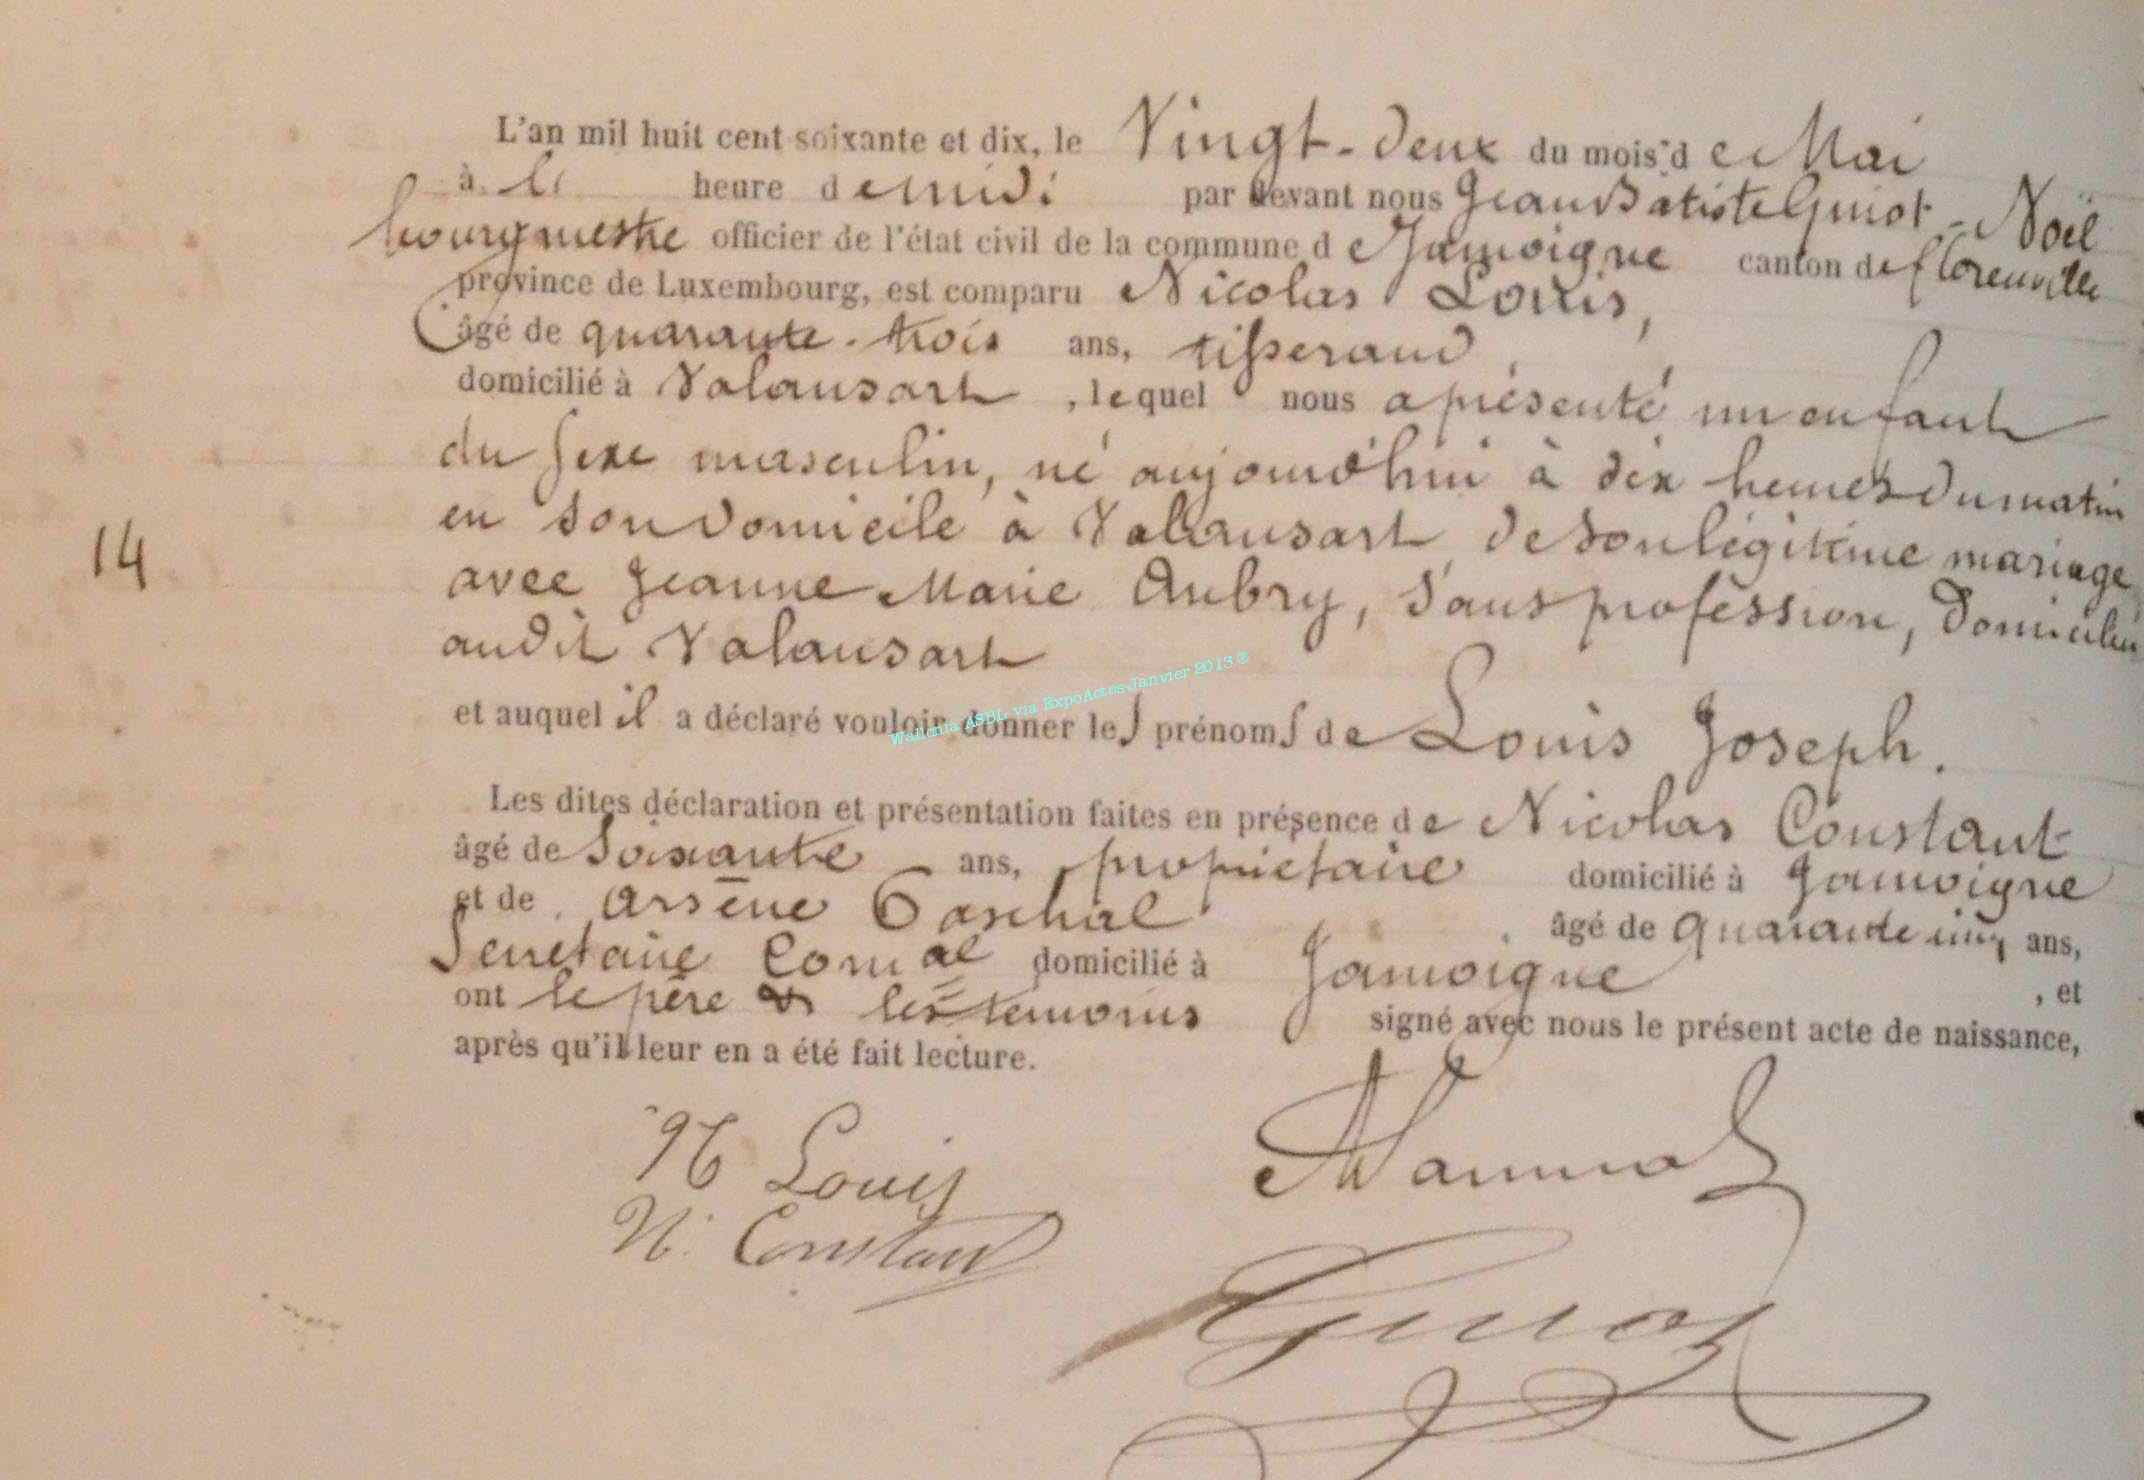 L'an mil huit cent soixante et dix, le Vingt-deux du mois d e Mai
à heure de midi par devant nous Jean Batiste Guiot - Noël
bourgmestre officier de l'état civil de la commune d e Jamoigne canton de florenville
province de Luxembourg, est comparu Nicolas Louis,
âgé de quarante-trois ans, tisserand
domicilié à Valansart, lequel nous a présenté un enfant
du sexe masculin, né aujourd'hui à dix heures du matin
en son domicile à Valansart de son légitime mariage
avec Jeanne Marie Aubry, sans profession, domiciliée
audit Valansart
14
et auquel il a déclaré vouloir donner les prénoms de Louis Joseph.
Wallonia ASBL via ExpoActes-Janvier 2013®
Les dites déclaration et présentation faites en présence de Nicolas Constant
âgé de soixante ans, propriétaire domicilié à Jamoigne
et de Arsène Paschal âgé de quarante cinq ans,
Secretaire Comal domicilié à Jamoigne, et
ont le père et les temoins signé avec nous le présent acte de naissance,
après qu'il leur en a été fait lecture.
N Louis
N. Constant
Guiot